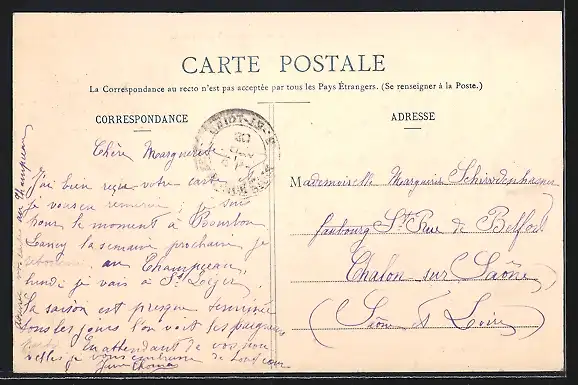 CARTE POSTALE
La Correspondance au recto n'est pas acceptée par tous les Pays Étrangers. (Se renseigner à la Poste.)
CORRESPONDANCE
Chère Marguerite
J'ai bien reçu votre carte et
je vous en remercie je suis
pour le moment à Bourbon
Lancy la semaine prochaine je
au Champceau,
lundi je vais à St Léger
la saison est presque terminée
tous les jours l'on voit les
En attendant de vos nou
velles je vous embrasse de tout cœur
ADRESSE
Mademoiselle Marguerite
faubourg St Rue de Belfort
Chalon sur Saône
(Saône et Loire)